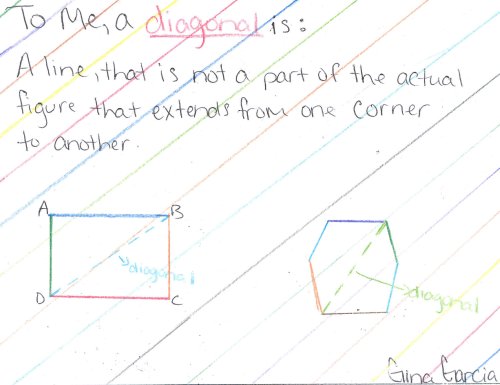 To Me, a diagonal is:
A line, that is not a part of the actual
figure that extends from one corner
to another.
A B
diagonal
D C
diagonal
Gina Garcia